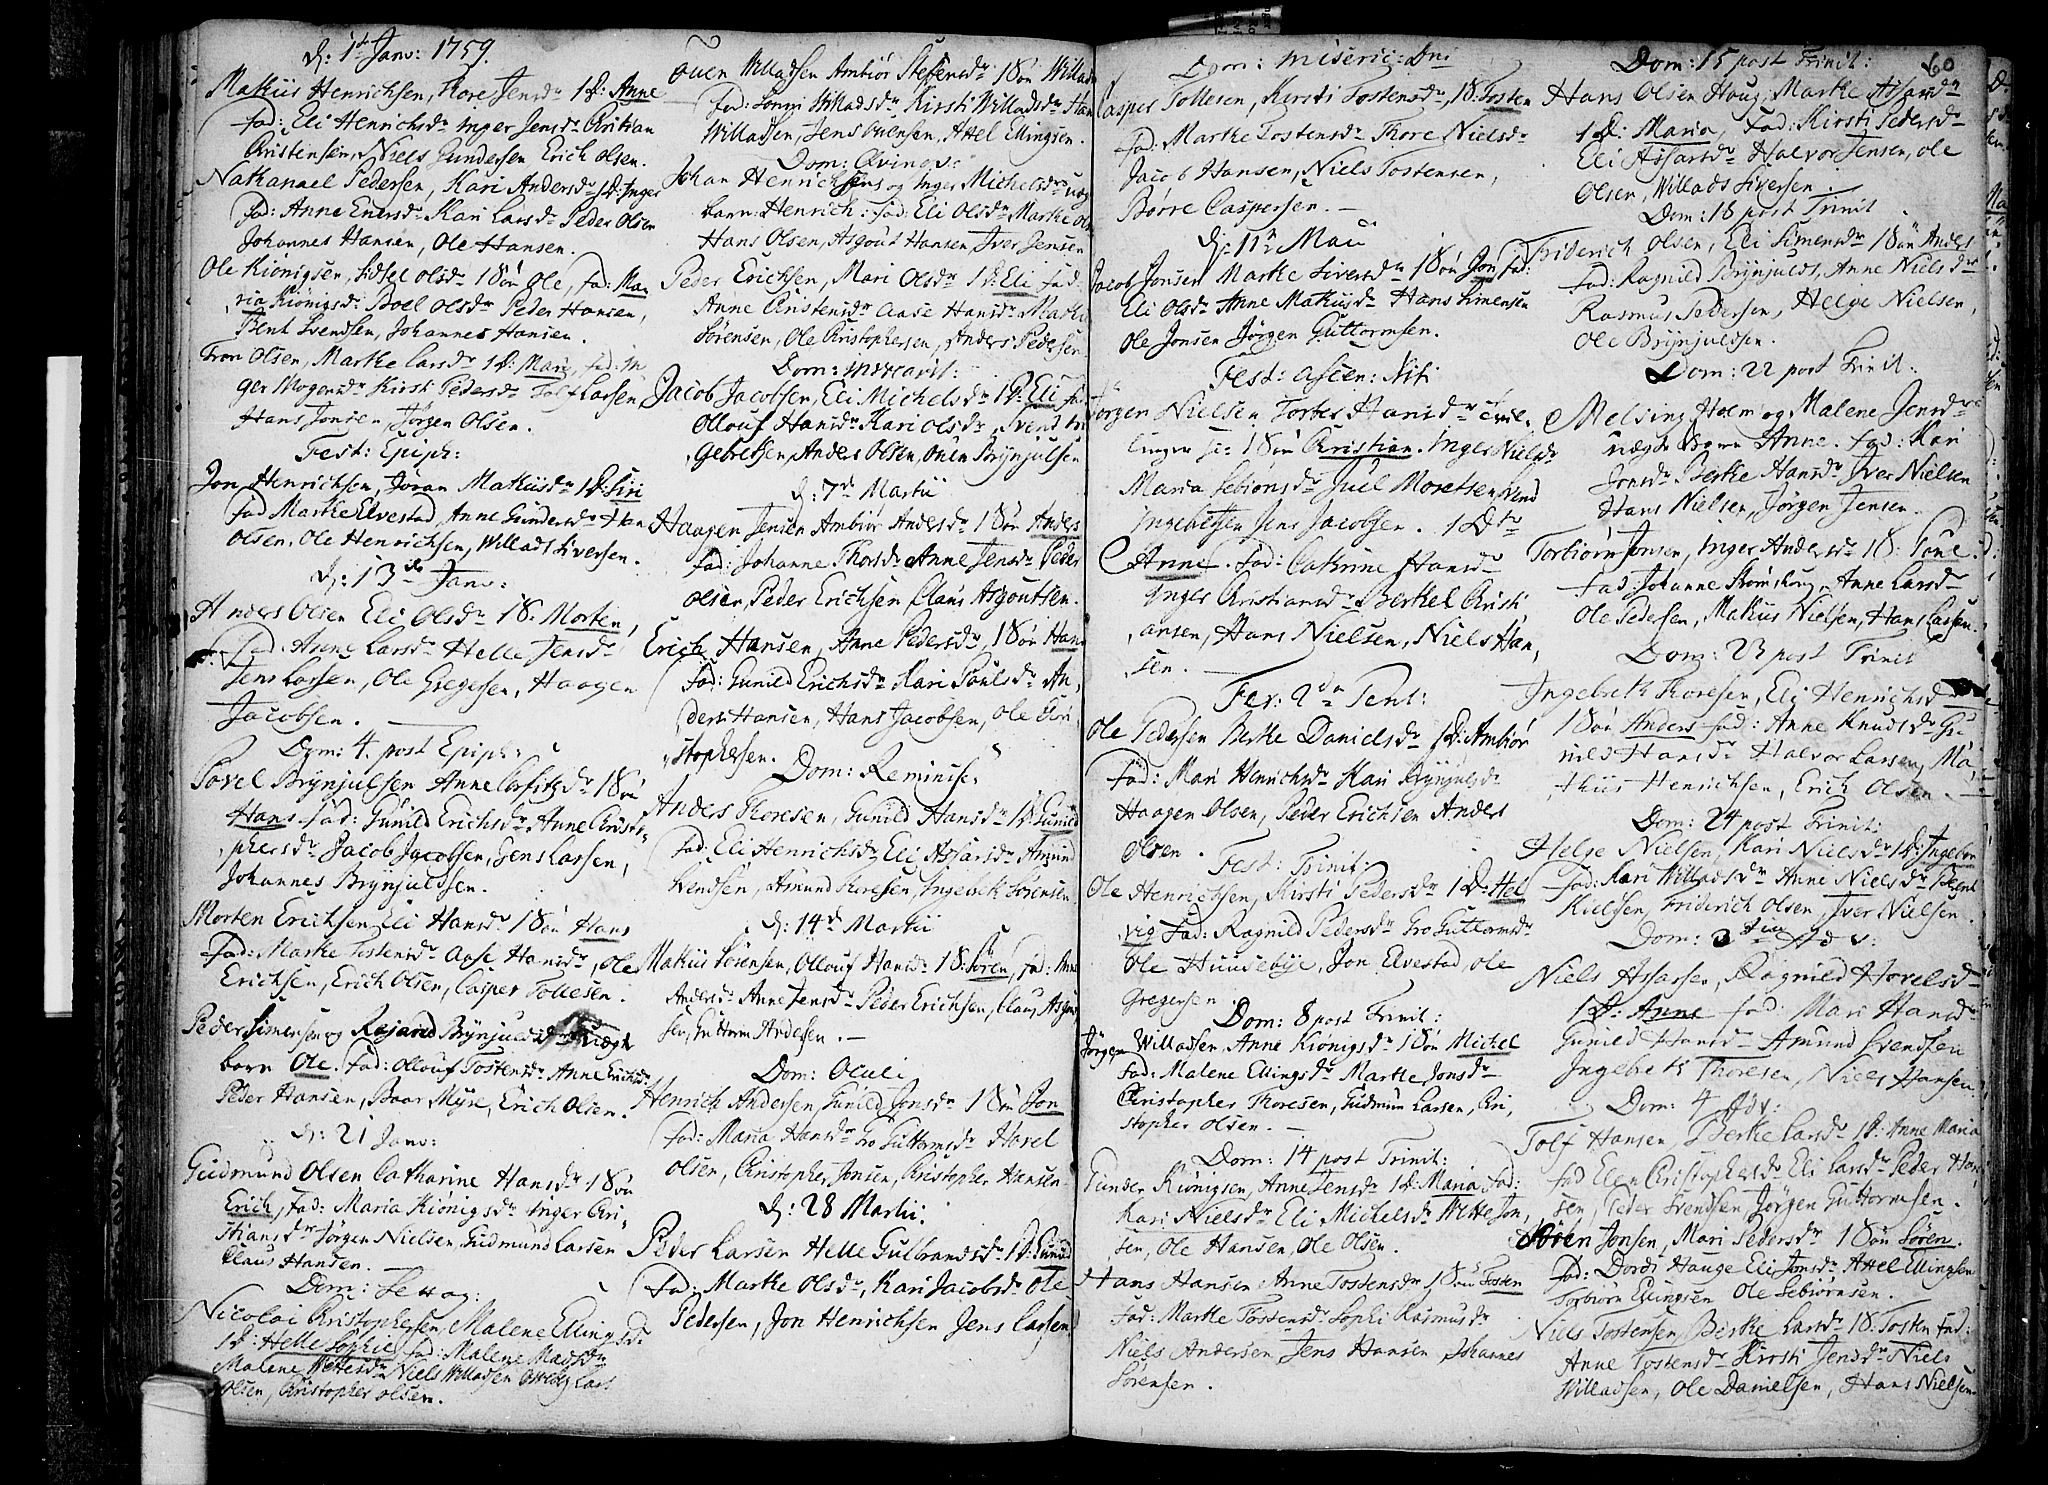 d: 1te Janv: 1759.
Mathis Henrichsen, Thore Jensdr 1 D: Anne
fad: Eli Henrichsdr Inger Jensdr Christian
Christensen, Niels Gundersen Erich Olsen.
Nathanael Pedersen, Kari Andersdr 1 D: Inger
fad: Anne Enersdr Kari Larsdr Peder Olsen
Johannes Hansen, Ole Hansen.
Ole Kiönigsen, Sidsel Olsdr 1 Sön Ole, fad: Ma
ria Kiönigsdr Boel Olsdr Peder Hansen,
Bent Svendsen, Johannes Hansen.
Tron Olsen, Marthe Larsdr 1 D: Mari, fad: In
ger Mogensdr Kirsti Pedersdr Tolf Larsen,
Hans Jonsen, Jørgen Olsen.
Fest: Epiph:
Jon Henrichsen, Jöran Mathisdr 1 D: Siri
fad Marthe Elvestad Anne Gundersdr
Olsen, Ole Henrichsen, Willads Siversen.
d: 13de Janv:
Anders Olsen Eli Olsdr 1 S: Morten,
Fad: Anne Larsdr Helle Jensdr
Jens Larsen, Ole Gregersen, Haagen
Jacobsen.
Dom: 4. post Epiph:
Povel Brynjulsen Anne 1 Sön
Hans fad: Gunild Erichsdr Anne Christo
phersdr Jacob Jacobsen, Jens Larsen,
Johannes Brynjuldsen.
Morten Erichsen Eli Hansdr 1 Sön Hans
Fad: Marthe Tostensdr Aase Hansdr, Ole
Erichsen, Erich Olsen, Casper Tollesen.
Peder Simensen og Brynjuldsdr uægte
barn Ole. Fad: Ollouf Tostensdr Anne Erichsdr
Peder Hansen, Baar Myre, Erich Olsen.
d: 21 Janv:
Gudmund Olsen Catharine Hansdr 1 Sön
Erich, fad: Maria Kiönigsdr Inger Chri
stiansdr Jørgen Nielsen, Gudmund Larsen
Claus Hansen.
Dom: Septuag:
Nicolai Christophersen, Malene Ellingsdr
1 D: Helle Sophie fad: Malene Madsdr
Malene Niels Willadsen Lars
Olsen, Christopher Olsen.
Ouen Willadsen Ambiör Steffensdr 1 Sön Willads
Fad: Willadsdr Kirsti Willadsdr Hans
Willadsen, Jens Ouensen, Attel Ellingsen.
Dom: Qvinqv:
Johan Henrichsen og Inger Michelsdr uæg
barn: Henrich: fad: Eli Olsdr Marthe Ols
Hans Olsen, Asgout Hansen, Iver Jensen
Peder Erichsen, Mari Olsdr 1 D: Eli fad:
Anne Christensdr Aase Hansdr
Sörensen, Ole Christophersen, Anders Pedersen
Dom: invocavit:
Jacob Jacobsen, Eli Michelsdr 1 D: Eli fad
Ollouf Hansdr Kari Olsdr, Svend In
gebretsen, Anders Olsen, Ouen Brynjulsen
d: 7de Martii
Haagen Jensen Ambiör Andersdr 1 Sön Anders
Fad: Johanne Thorsdr Anne Jensdr Peder
Olsen, Peder Erichsen Claus Asgoutsen.
Erich Hansen, Anne Pedersdr, 1 Sön Hans
Fad: Gunild Erichsdr Kari Poulsdr An
ders Hansen, Hans Jacobsen, Ole Chri
stophersen.
Dom: Reminisc:
Anders Thoresen, Gunild Hansdr 1 D: Gunild
Fad: Eli Henrichsdr Eli Assarsdr Amund
Svendsen, Amund Thoresen, Ingebreth Sörensen
d: 14de Martii
Mathis Sörensen, Ollouf Hansdr 1 S: Sören, fad: Anne
Andersdr Anne Jensdr Peder Erichsen, Claus Asgout
sen, Guttorm Andersen.
Dom: Oculi
Henrich Andersen, Gunild Jonsdr 1 Sön Jon
Fad: Maria Hansdr Gro Guttormsdr Hovel
Olsen, Christopher Jonsen, Christopher Hansen
d: 28 Martii.
Peder Larsen Helle Gulbrandsdr 1 D: Gunild
Fad: Marthe Olsdr, Kari Jacobsdr Ole
Pedersen, Jon Henrichsen Jens Larsen
60
Dom: Miseric: Dni
Casper Tollesen, Kirsti Tostensdr, 1 S: Tosten
Fad: Marthe Tostensdr Thore Nielsdr
Jacob Hansen, Niels Tostensen,
Börre Caspersen.
d: 11te Maii
Jacob Jonsen Marthe Siversdr 1 Sön Jon fad:
Eli Olsdr Anne Mathisdr Hans Simensen
Ole Jonsen Jørgen Guttormsen.
Fest: Ascen: Xsti
Jørgen Nielsen Torber Hansdr tvil
linger 1 Sön Christian. Inger Nielsdr
Maria Juel Moretsen, Svend
Ingebretsen Jens Jacobsen. 1 Dtr
Anne. Fad: Cathrine Hansdr
Inger Christiansdr Berthel Christi
ansen, Hans Nielsen, Niels Han
sen.
Fer: 2da Pent:
Ole Pedersen Berthe Danielsdr 1 D: Ambiör
Fad: Mari Henrichsdr Kari Brynjulsdr
Haagen Olsen, Peder Erichsen Anders
Olsen.
Fest: Trinit:
Ole Henrichsen, Kirsti Pedersdr 1 D: Hel
vig Fad: Ragnild Pedersdr Gro Guttormsdr
Ole Huusebye, Jon Elvestad, Ole
Gregersen
Dom: 8 post Trinit:
Jörgen Willadsen, Anne Kiönigsdr 1 Sön Michel
Fad: Malene Ellingsdr Marthe Jonsdr
Christopher Thoresen, Gudmun Larsen, Chri
stopher Olsen.
Dom: 14 post Trinit:
Gunder Kiönigsen, Anne Jensdr 1 D: Maria Fad:
Kari Nielsdr Eli Michelsdr Wette Jon
sen, Ole Hansen, Ole Olsen.
Hans Hansen Anne Tostensdr 1 Sön Tosten
Fad: Marthe Tostensdr Sophi Rasmusdr
Niels Andersen Jens Hansen, Johannes
Sörensen.
Dom: 15 post Trinit:
Hans Olsen Houg, Marthe Assarsdr
1 D: Maria, Fad: Kirsti Pedersdr
Eli Assarsdr Halvor Jensen, Ole
Olsen, Willads Siversen.
Dom: 18 post Trinit
Friderich Olsen, Eli Simensdr 1 Sön Anders
fad: Ragnild Brynjulds, Anne Nielsdr
Rasmus Pedersen, Helge Nielsen,
Ole Brynjuldsen.
Dom: 22 post Trinit:
Melsing Holm og Malene Jensdr
uægte Barn Anne. Fad: Kari
Jonsdr Berthe Hansdr Iver Nielsen
Hans Nielsen, Jørgen Jensen.
Torbiörn Jonsen, Inger Andersdr 1 S: Poul.
Fad: Johanne Anne Larsdr
Ole Pedersen, Mathis Nielsen, Hans Larsen.
Dom: 23 post Trinit
Ingebreth Thoresen, Eli Henrichsdr
1 Sön Anders fad: Anne Knudsdr Gu
nild Hansdr Halvor Larsen, Ma
thias Henrichsen, Erich Olsen.
Dom: 24 post Trinit:
Helge Nielsen, Kari Nielsdr 1 D: Ingebor
fad: Kari Willadsdr Anne Nielsdr Bernt
Kielsen, Friderich Olsen, Iver Nielsen.
Dom: 3tiæ Adv:
Niels Assarsen, Ragnild Hovelsdr
1 D: Anne fad: Mari Hansdr
Gunild Hansdr Amund Svendsen
Ingebreth Thoresen, Niels Hansen.
Dom: 4 Adv:
Tolf Hansen Berthe Larsdr 1 D: Anne Maria
fad Elen Christophersdr Eli Larsdr Peder Han
sen, Peder Svendsen Jörgen Guttormsen.
Sören Jonsen, Mari Pedersdr 1 Sön Sören.
fad: Dordi Hauge Eli Jonsdr Attel Ellingsen
Torbiörn Ellingsen Ole Sebiörnsen.
Niels Tostensen, Berthe Larsdr 1 S: Tosten fad:
Anne Tostensdr Kirsti Jensdr Niels
Willadsen, Ole Danielsen, Hans Nielsen